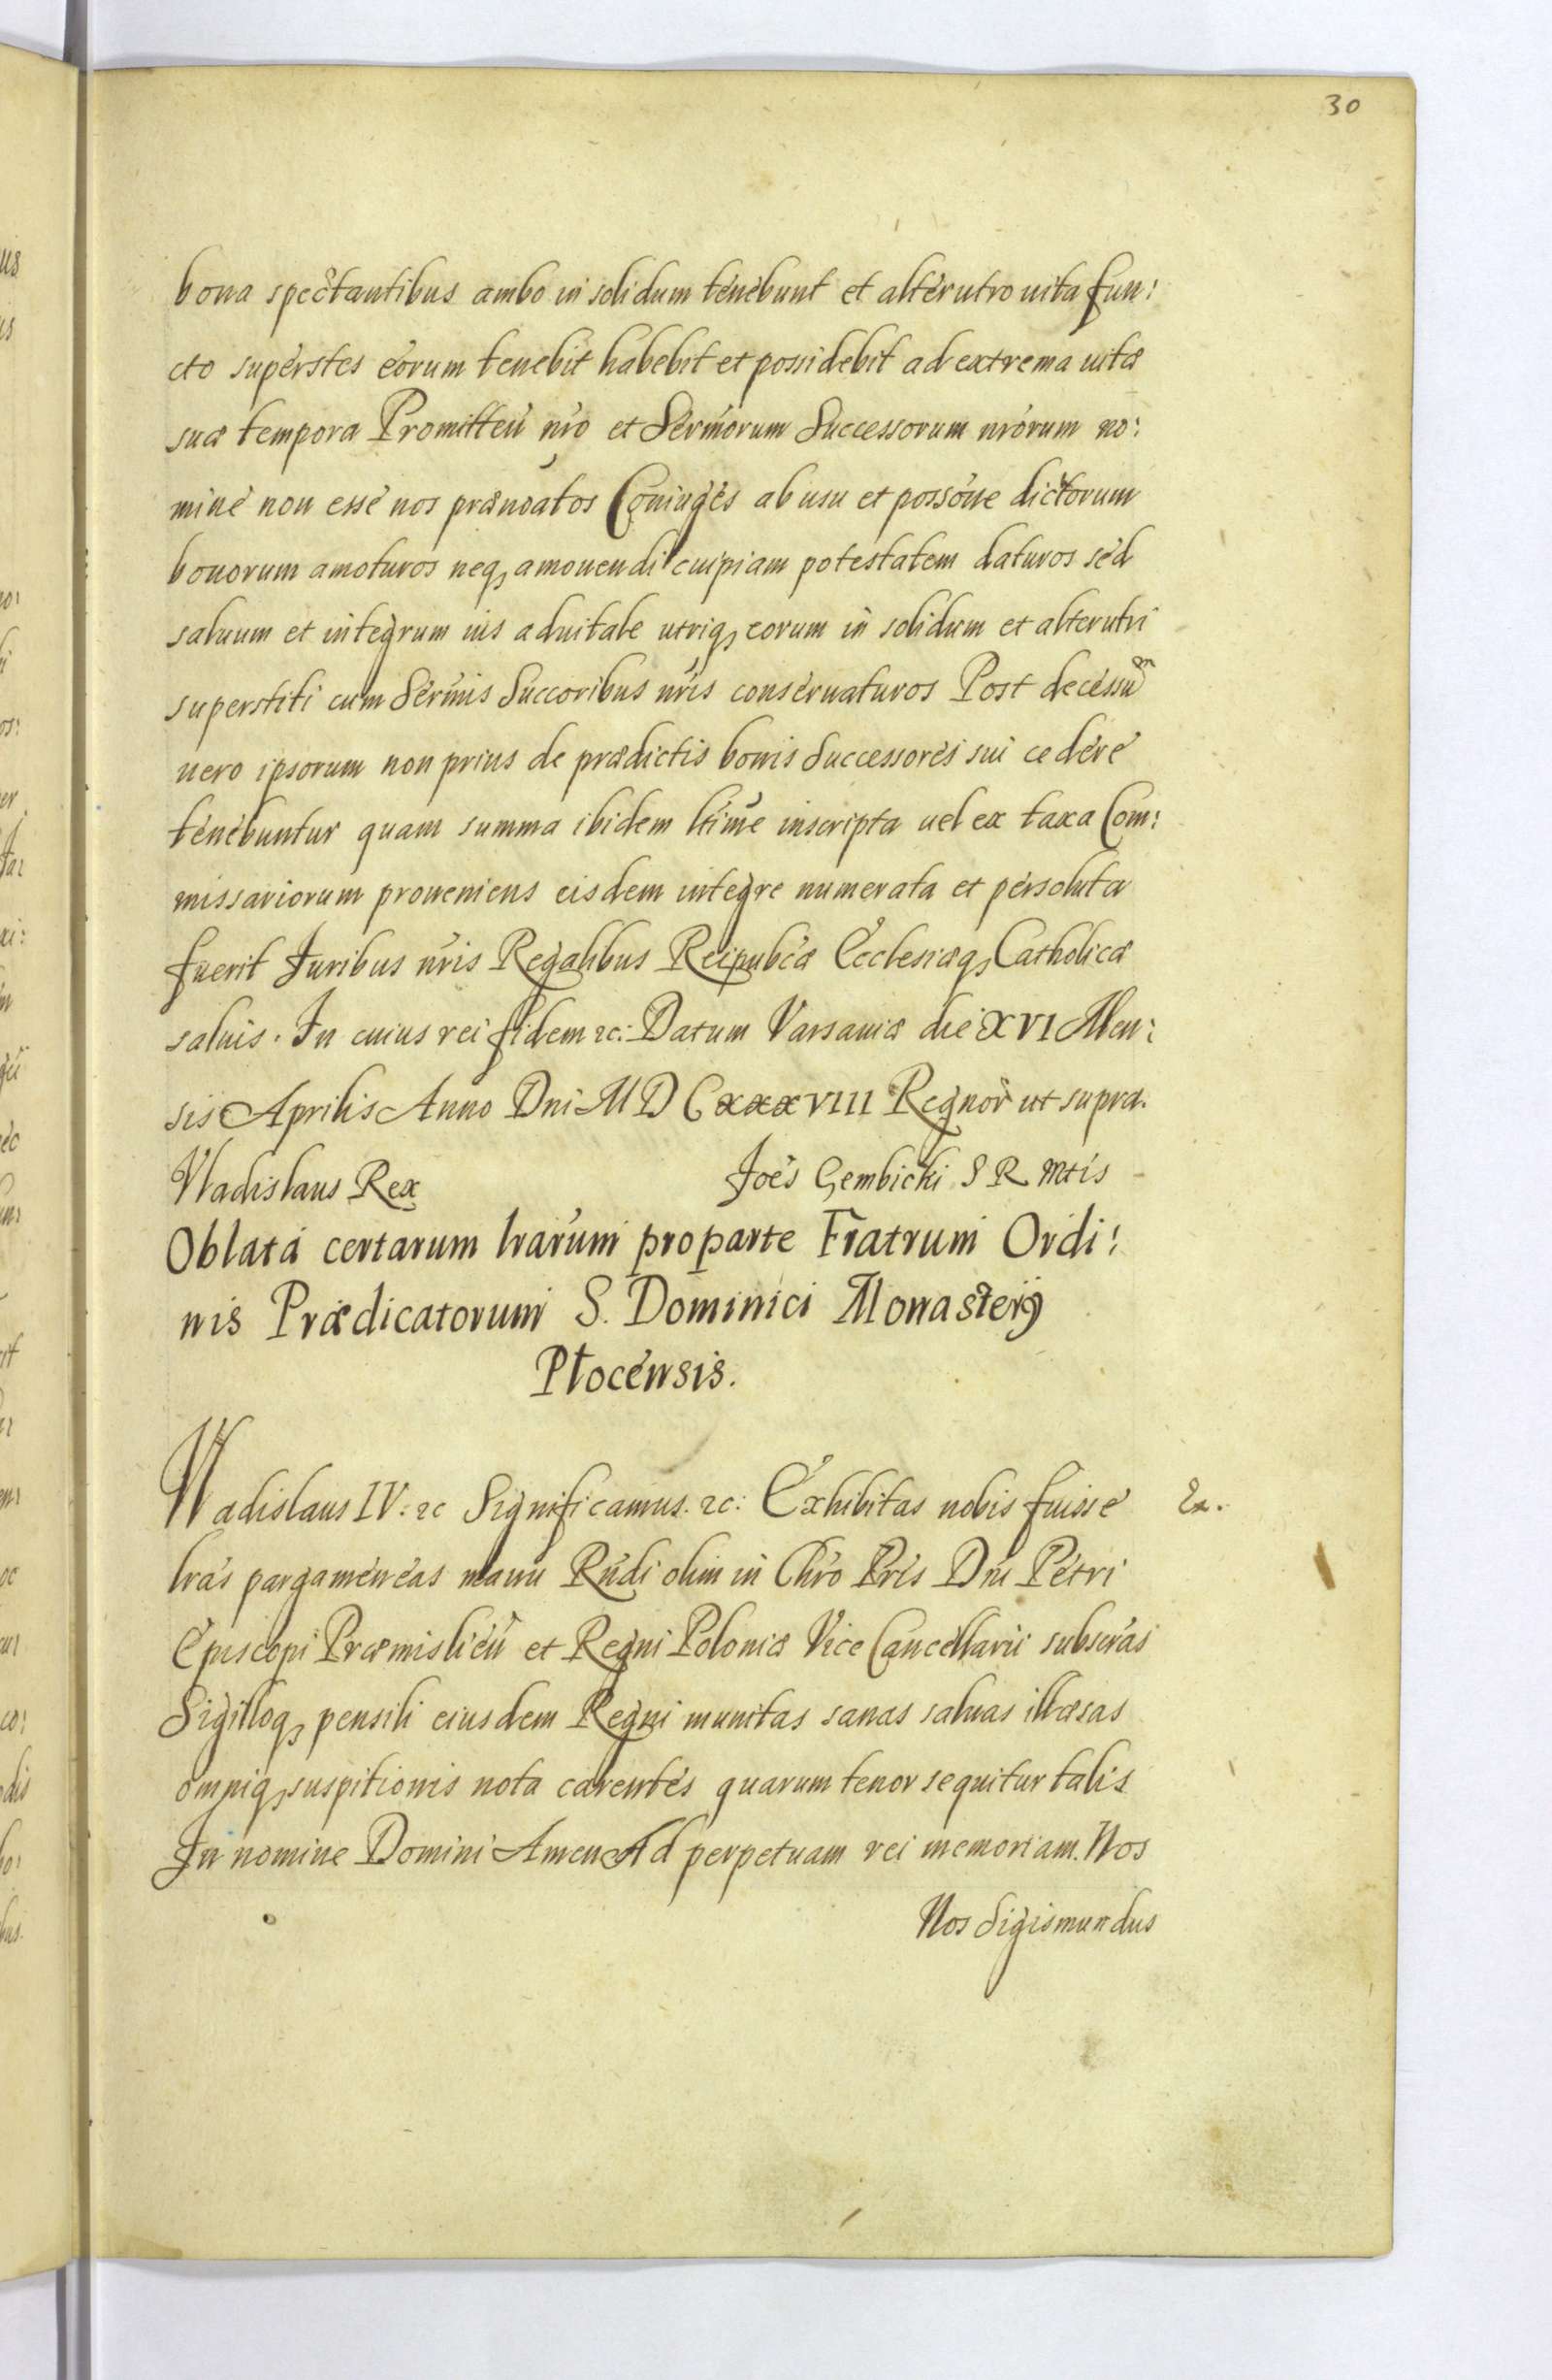 30
bona spectantibus ambo in solidum tenebunt et alterutro uita fun:
cto superstes eorum tenebit habebit et possidebit ad extrema uitæ
suæ tempora Promitteñ nr̃o et Sermorum Successorum nr̃orum no:
mine non esse nos prænoatos Coniuges ab usu et possoñe dictorum
bonorum amoturos neq, amouendi cuipiam potestatem daturos sed
saluum et integrum ius aduitale utriq, eorum in solidum et alterutri
superstiti cum Serm̃is Succoribus nr̃is conseruaturos Post decessũ
uero ipsorum non prius de prædictis bonis Successores sui cedere
tenebuntur quam summa ibidem ltim̃e inscripta uel ex taxa Com:
missariorum proueniens eisdem integre numerata et persoluta
fuerit Juribus nr̃is Regalibus Reipubcæ Ecclesiæq, Catholicæ
saluis. In cuius rei fidem &c: Datum Varsauiæ die XVI Men:
sis Aprilis Anno Dni M D CxxxVIII Regnor̃ ut supra.
Vladislaus Rex Joes Gembicki S R Mtis
Oblata certarum lrarum pro parte Fratrum Ordi:
nis Prædicatorum S. Dominici Monasterij
Plocensis.
Wladislaus IV: &c Significamus. &c: Exhibitas nobis fuisse
lras pargameneas manu Rñdi olim in Chr̃o Pr̃is Dñi Petri
Episcopi Præmislieñ et Regni Poloniæ Vice Cancellarii subscras
Sigilloq, pensili eiusdem Regni munitas sanas saluas illæsas
omniq, suspitionis nota carentes quarum tenor sequitur talis
In nomine Domini Amen Ad perpetuam rei memoriam. Nos
Nos Sigismundus